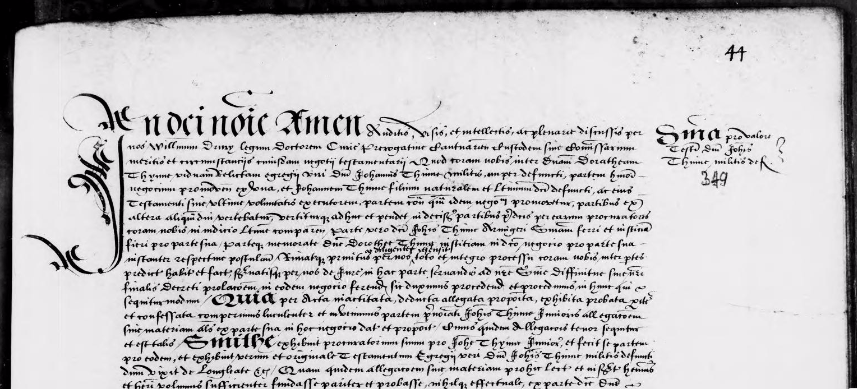 44
In dei noīe Amen Auditis, visis, et intellectis, ac plenarie discussis per
nos Willmum Drury legum doctorem Curie Prerogative Cantuarien Custodem sive Comissarium
meritis et circumstanciis cuiusdam negotii testamentarii Quod coram nobis, inter dnam Dorotheam
Thynne viduam relictam egregii viri dni Johannis Thynne militis, nuper defuncti, partem hmoi
negotium promoven ex una, et Johannem Thynne filium naturalem et ltimum dci defuncti, ac eius
Testamenti sive ultime voluntatis executorem, partem con quam idem nego promovetur, partibus ex
altera aliquandiu vertebatur, vertiturque adhuc et pendet indecis, partibus pdcis per earum procuratores
coram nobis in iudicio ltime comparen parte vero dci Johis Thynne Armigeri Sniam ferri et iusticia
fieri pro parte sua, parteque memorate dne Dorothee Thynne iusticiam in dco negotio pro parte sua
instanter respective postulan Rimatoque primitus per nos toto et integro processu coram nobis inter ptes
et diligenter recensito
predict habit et fact, servatisque per nos de Iure in hac parte servandis ad nre Snie diffinitive sive
finalis Decreti prolacoem, in eodem negotio ferend sic duximus procedend et procedimus, in hunc qui
sequitur modum / Quia per Acta inactitata, deducta allegata proposita, exhibita probata pit
et confessata comperimus luculenter et invenimus partem pnoiati Johis Thynne Junioris allegacoem
sive materiam als ex parte sua in hoc negotio dat et proposit Cuius quidem Allegacois tenor sequitur
et est talis Smithe exhibuit procuratorium suum pro Johe Thynne Juniore, et fecit se partem
pro eodem, et exhibuit verum et originale Testamentum Egregii viri dni Johis Thynne militis defuncti
dum vixit de Longleate &c / Quam quidem allegacoem sive materiam
et volumus sufficienter fundasse pariter et probasse, nihilque effectuale, ex parte dce dne
Snia pro valore
Testi dni Johis
Thynne militis def
349